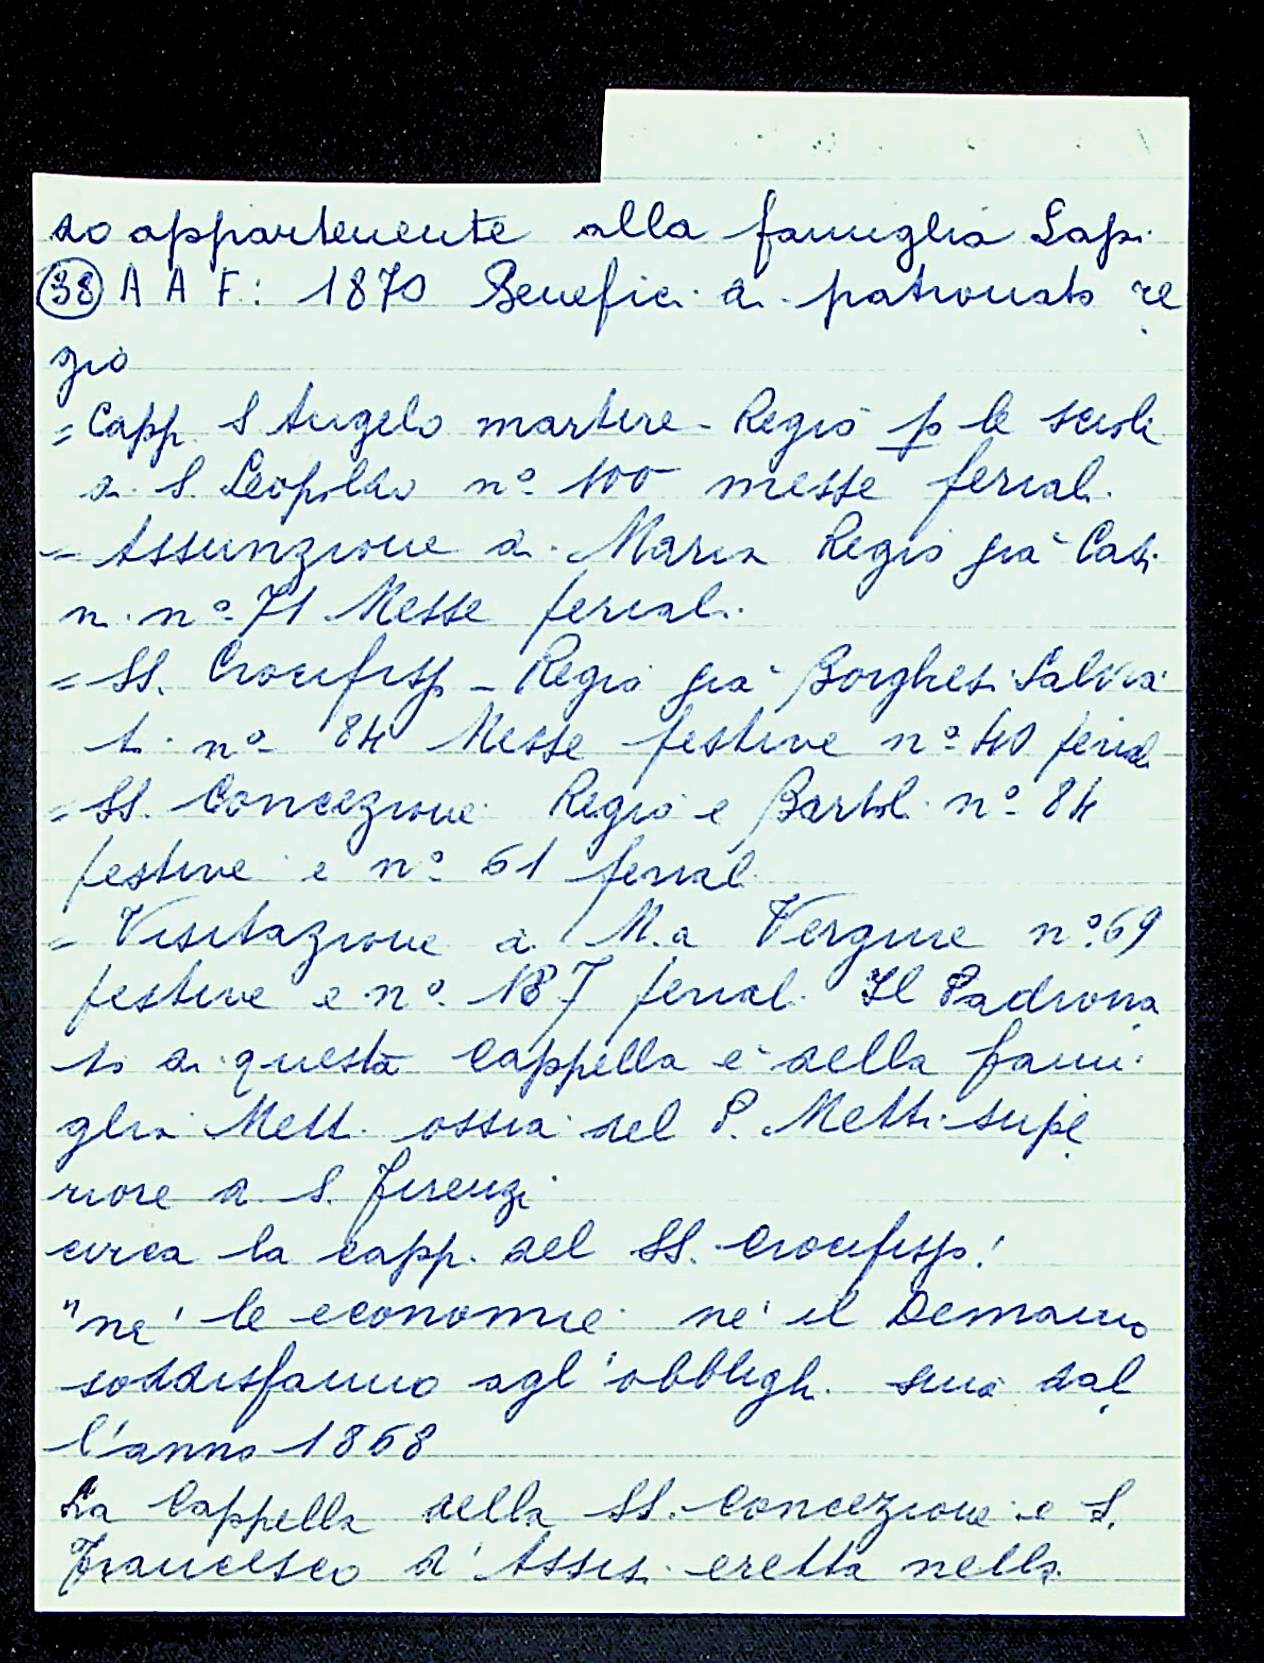 so appartenente alla famiglia Lapi.
38 A A F: 1870 Benefici di patronato re
gio
= Capp. S Angelo martire - Regio p le scuole
di S. Leopoldo n° 100 messe feriali.
= Assunzione di Maria Regio già Casi
ni n° 71 Messe feriali.
= SS. Crocifisso - Regio già Borghesi Salvia
ti n° 84 Messe festive n° 40 feriali
= SS. Concezione Regio e Bartol. n° 84
festive e n° 61 feriali
= Visitazione di M.a Vergine n° 69
festive e n° 187 feriali. Il Padrona
to di questa Cappella è della fami
glia Metti ossia del P. Metti supe
riore di S. Firenze
circa la capp. del SS. Crocifisso!
"né le economie né il Demanio
soddisfanno agl'obblighi sino dal
l'anno 1868
La Cappella della SS. Concezione e S.
Francesco d'Assisi eretta nella